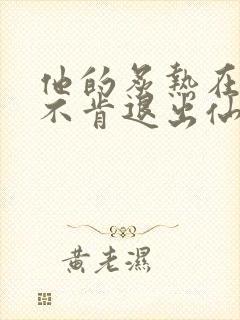 他的炙热在
不肯退出仙
黄老濕